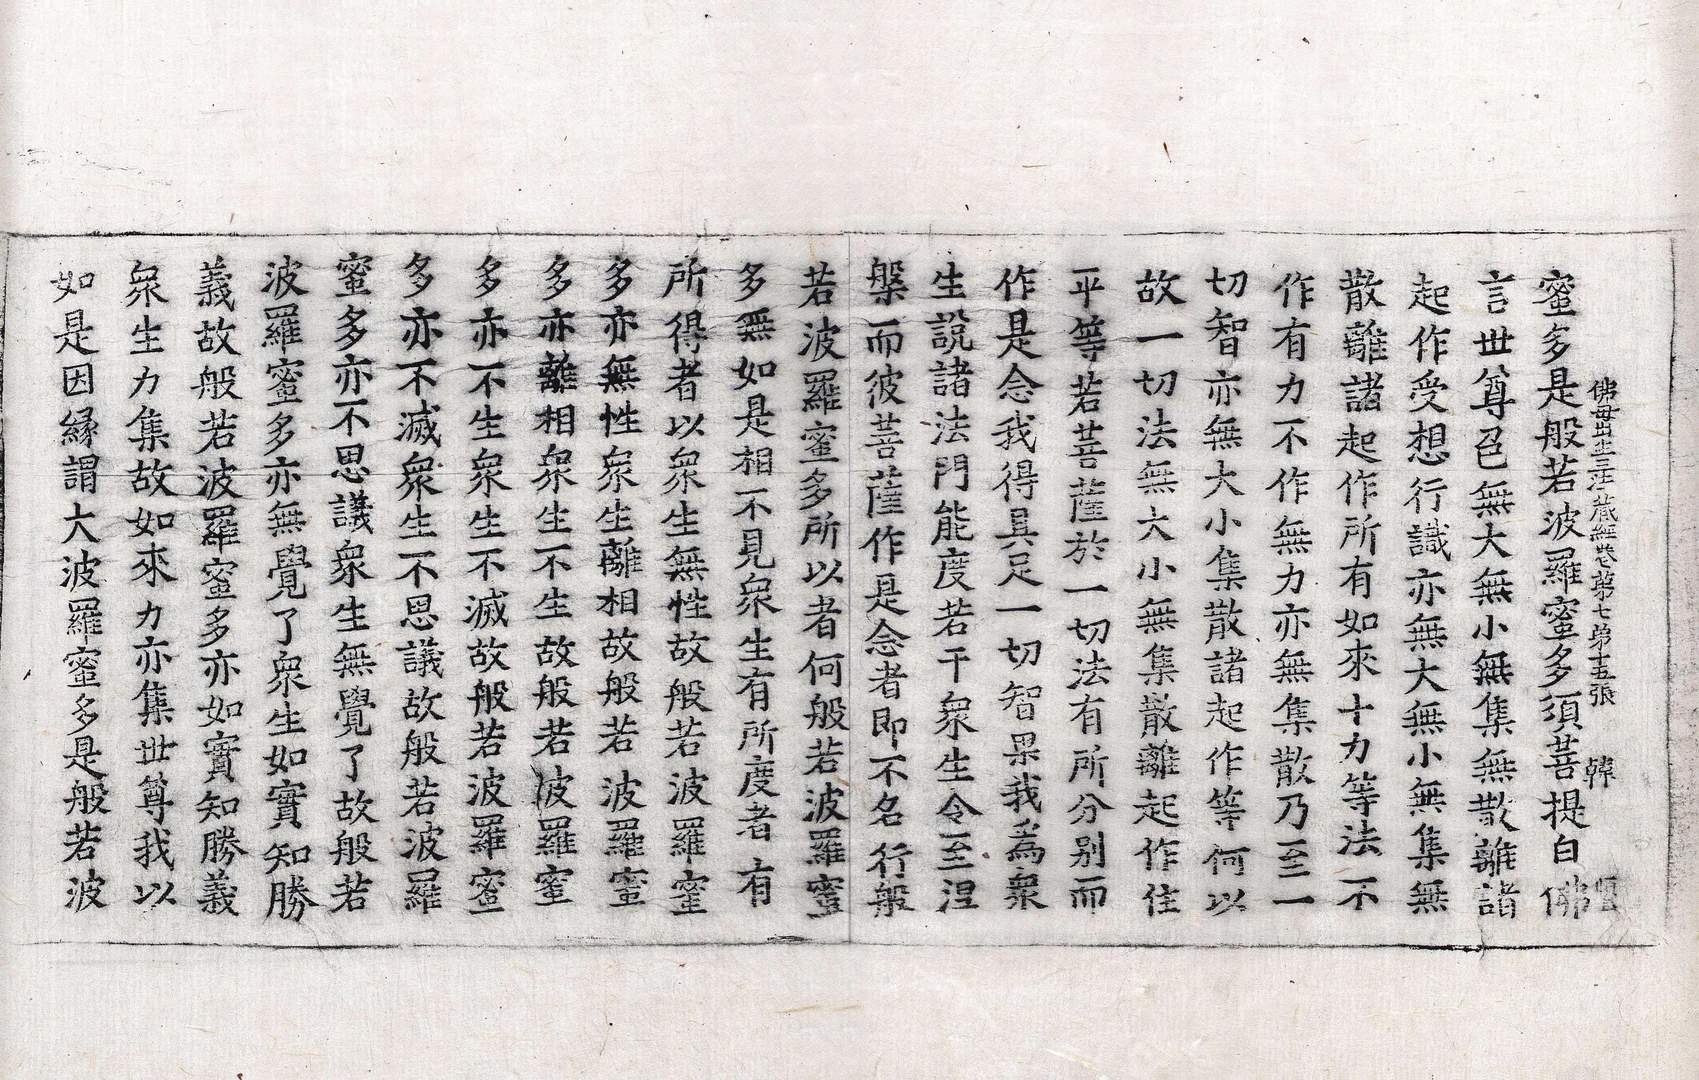 佛母出生三法藏經卷第七第十五張 韓
蜜多是般若波羅蜜多須菩提白佛
言世尊色無大無小無集無散離諸
起作受想行識亦無大無小無集無
散離諸起作所有如來十力等法不
作有力不作無力亦無集散乃至一
切智亦無大小集散諸起作等何以
故一切法無大小無集散離起作住
平等若菩薩於一切法有所分別而
作是念我得具足一切智果我為衆
生說諸法門能度若干衆生令至涅
槃而彼菩薩作是念者即不名行般
若波羅蜜多所以者何般若波羅蜜
多無如是相不見衆生有所度者有
所得者以衆生無性故般若波羅蜜
多亦無性衆生離相故般若波羅蜜
多亦離相衆生不生故般若波羅蜜
多亦不生衆生不滅故般若波羅蜜
多亦不滅衆生不思議故般若波羅
蜜多亦不思議衆生無覺了故般若
波羅蜜多亦無覺了衆生如實知勝
義故般若波羅蜜多亦如實知勝義
衆生力集故如來力亦集世尊我以
如是因緣謂大波羅蜜多是般若波